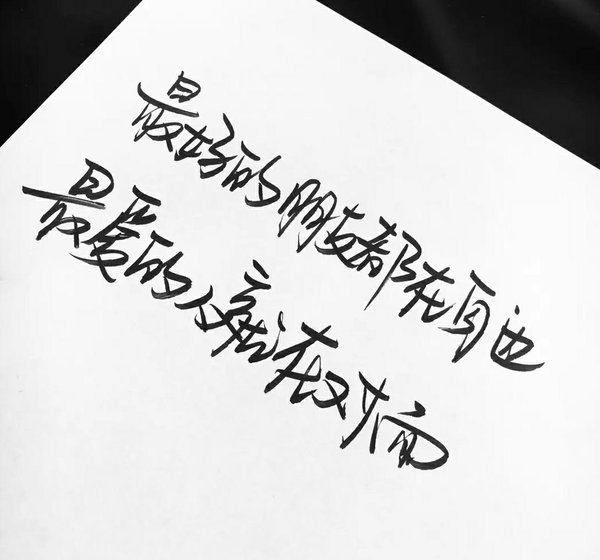 最好的朋友都在身边
最爱的人就在对面